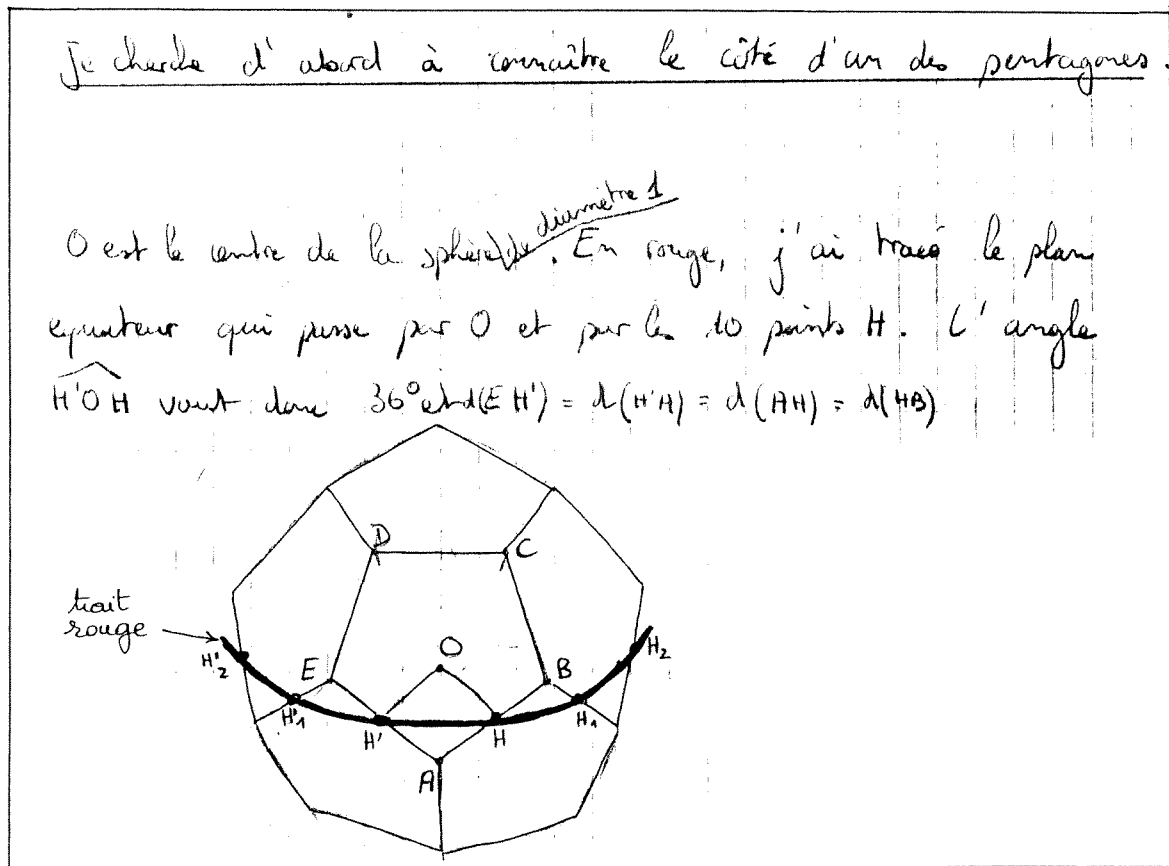 Je cherche d'abord à connaître le côté d'un des pentagones.
diamètre 1
O est le centre de la sphère de. En rouge, j'ai tracé le plan
equateur qui passe par O et par les 10 points H. L'angle
H'OH vaut donc 36° et d(EH') = d(H'A) = d(AH) = d(HB)
D C
trait
rouge
O
H'2 E B H2
H'1 H' H H1
A